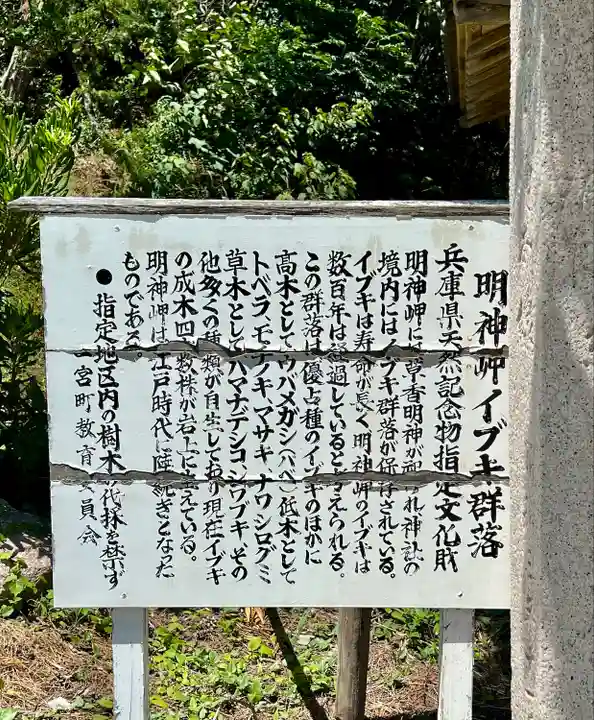 明神岬イブキ群落
兵庫県天然記念物指定文化財
明神岬には草香明神が祀られ神社の
境内にはイブキ群落が保存されている。
イブキは寿命が長く明神岬のイブキは
数百年は経過していると考えられる。
この群落は優占種のイブキのほかに
高木としてウバメガシ、ハゼ、低木として
トベラ、モチノキ、マサキ、ナワシログミ
草木としてハマナデシコ、ツワブキ、その
他多くの種類が自生しており現在イブキ
の成木四十数株が岩上に生えている。
明神岬は江戸時代に陸続きとなった
ものである
●指定地区内の樹木の伐採を禁ず
一宮町教育委員会